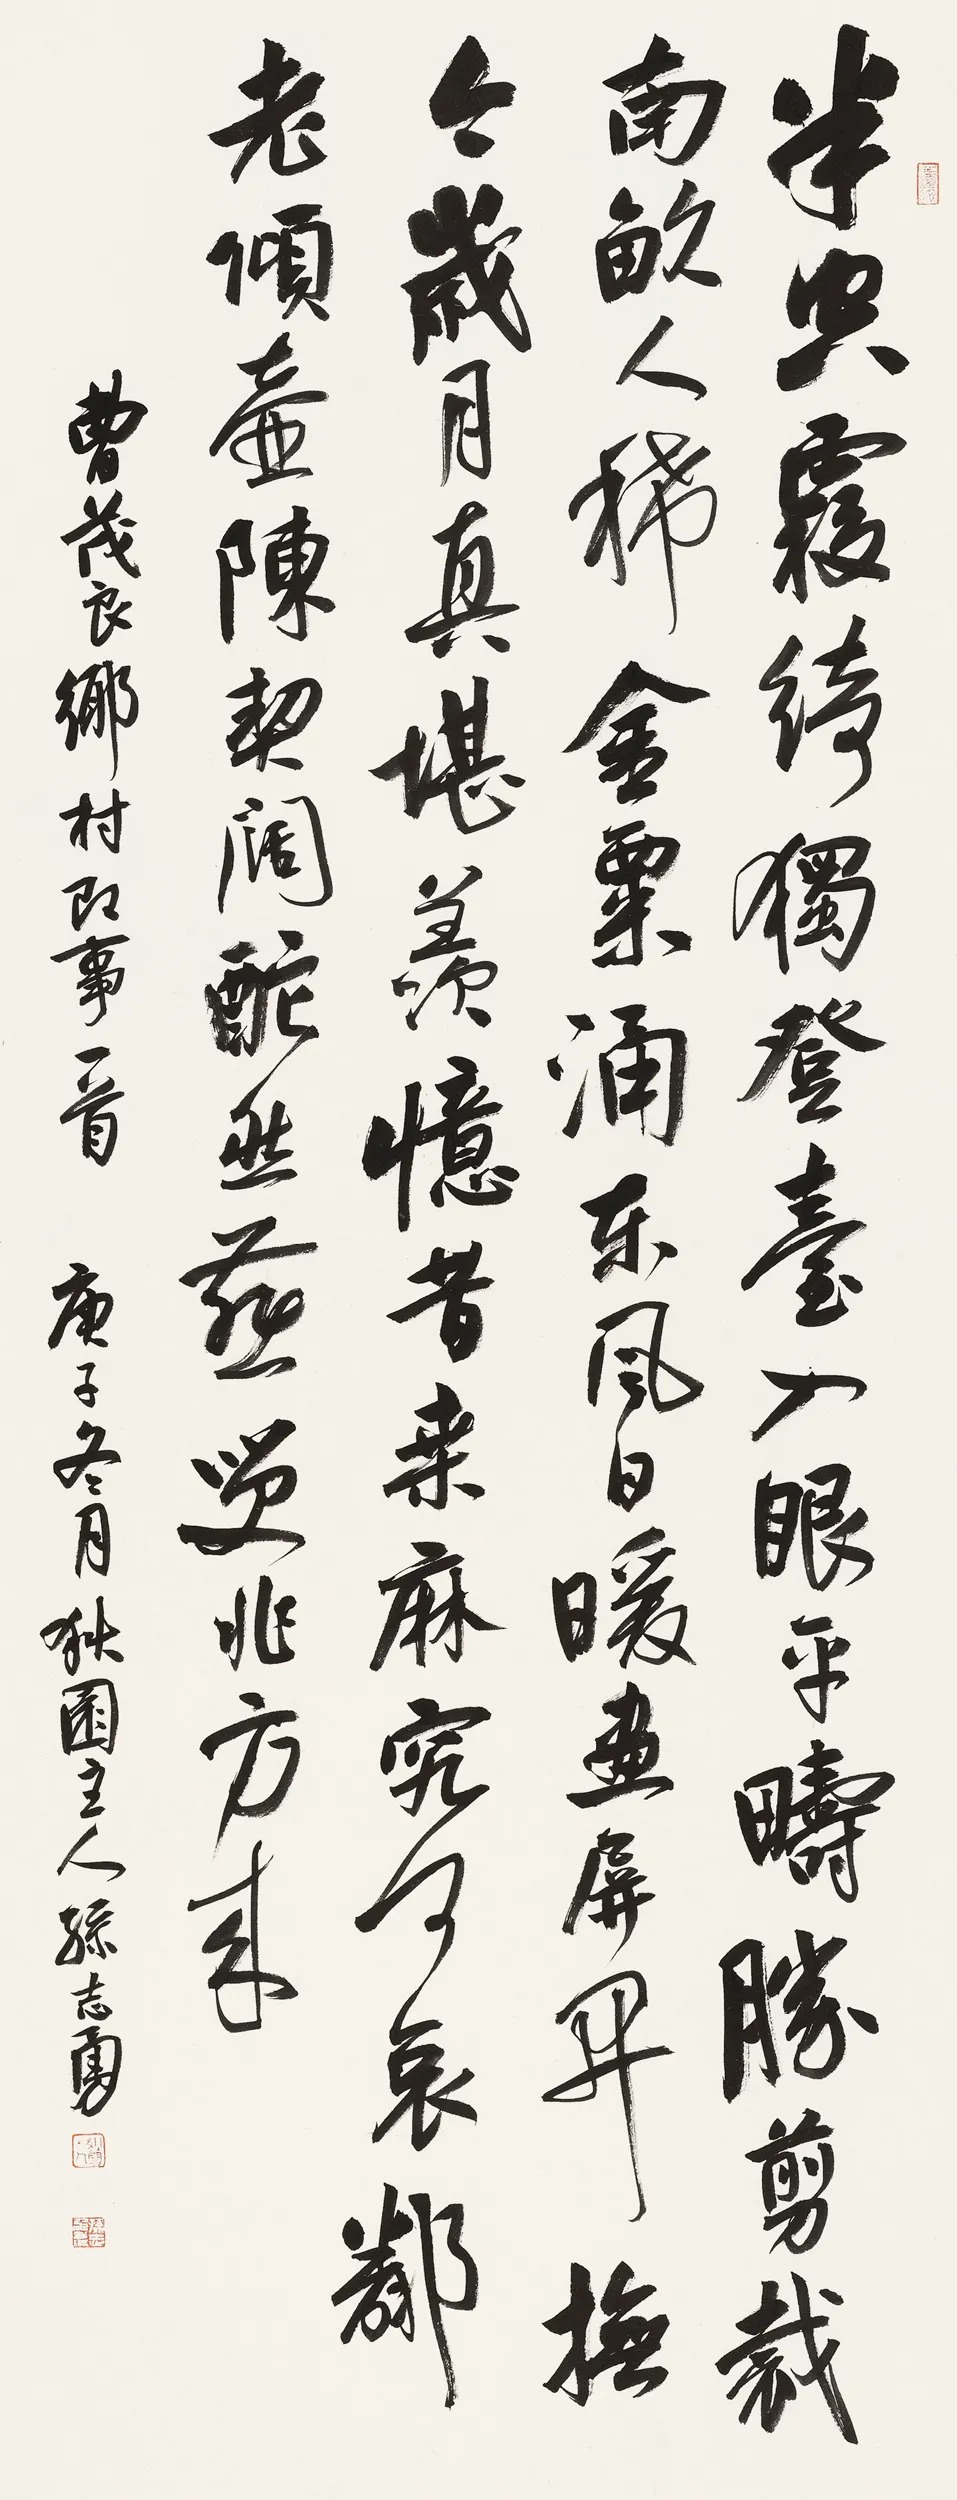 半空霞綺獨登臺入眼平疇勝剪裁
南畝人稀金粟涌东風日暖畫屏開撫
今歲月真堪羨憶昔桑麻究可哀鄰
老傾壺陳契闊酡然燕笑兆方來
曹茂良鄉村即事一首 庚子冬月園主人孫志勇